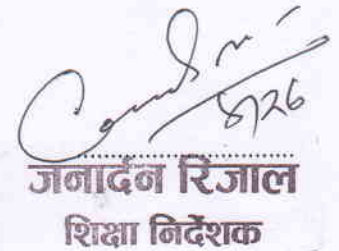 ५/२६
जनार्दन रिजाल
शिक्षा निर्देशक